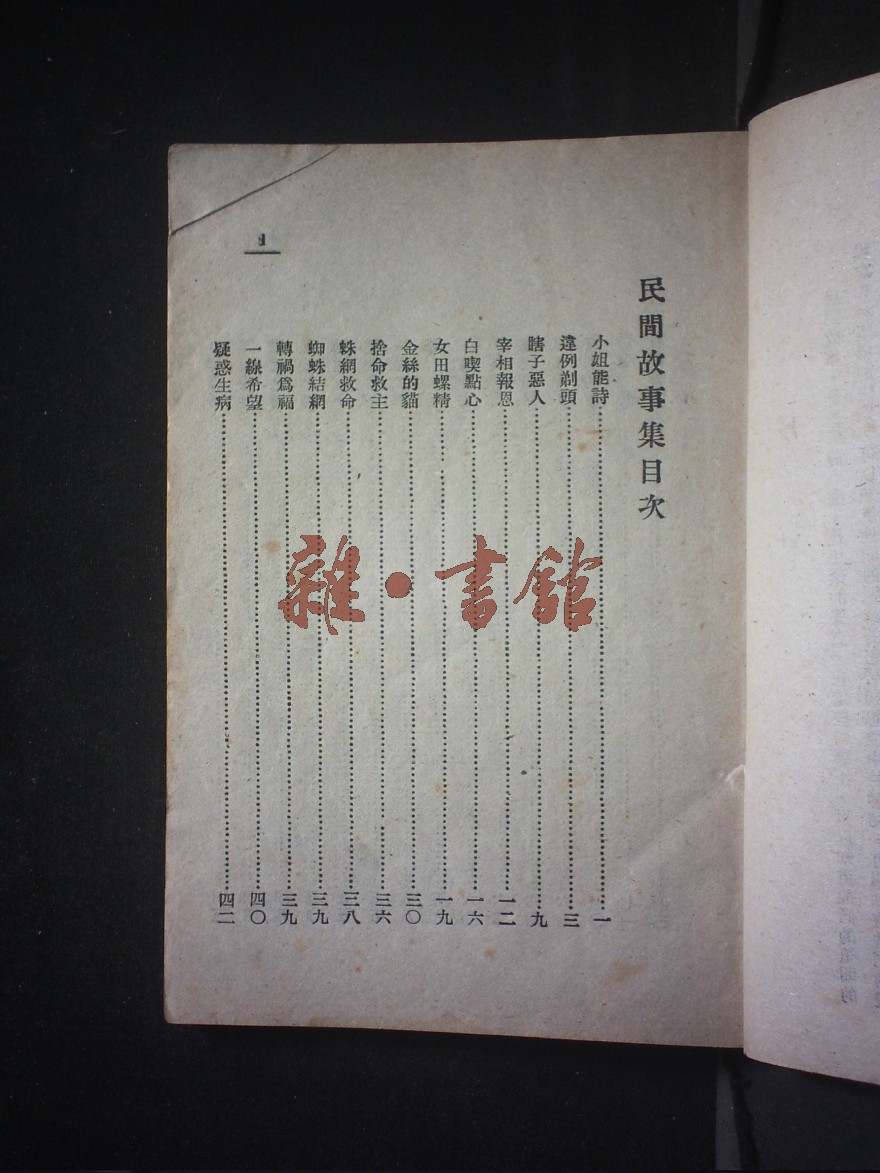 民間故事集目次
小姐能詩……一
違例剃頭……三
瞎子惡人……九
宰相報恩……一二
白喫點心……一六
女田螺精……一九
金絲的貓……三〇
捨命救主……三六
蛛網救命……三八
蜘蛛結網……三九
轉禍爲福……三九
一線希望……四〇
疑惑生病……四二
1
雜·書館